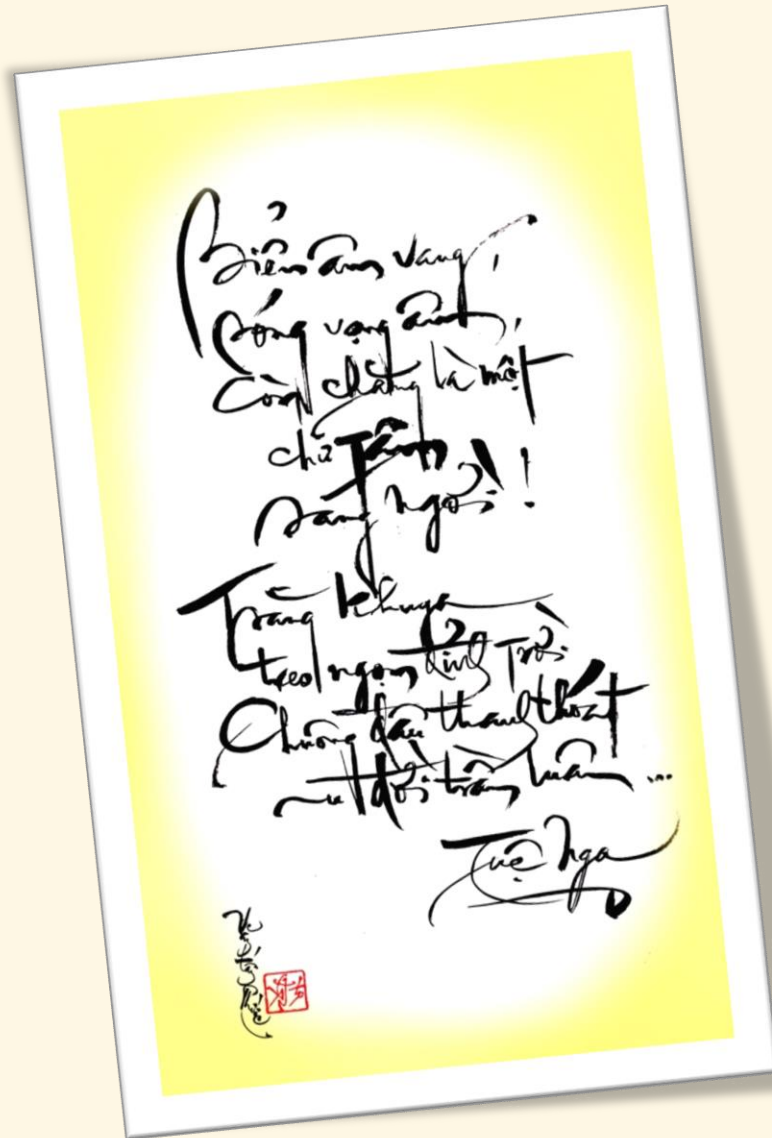 Biển âm vang,
sóng vang âm,
Còn chăng là một
chữ Tâm
sáng ngời!
Trăng khuya
treo ngọn đỉnh Trời
Chuông đâu thanh thoát
đời trầm luân...
Tuệ Nga